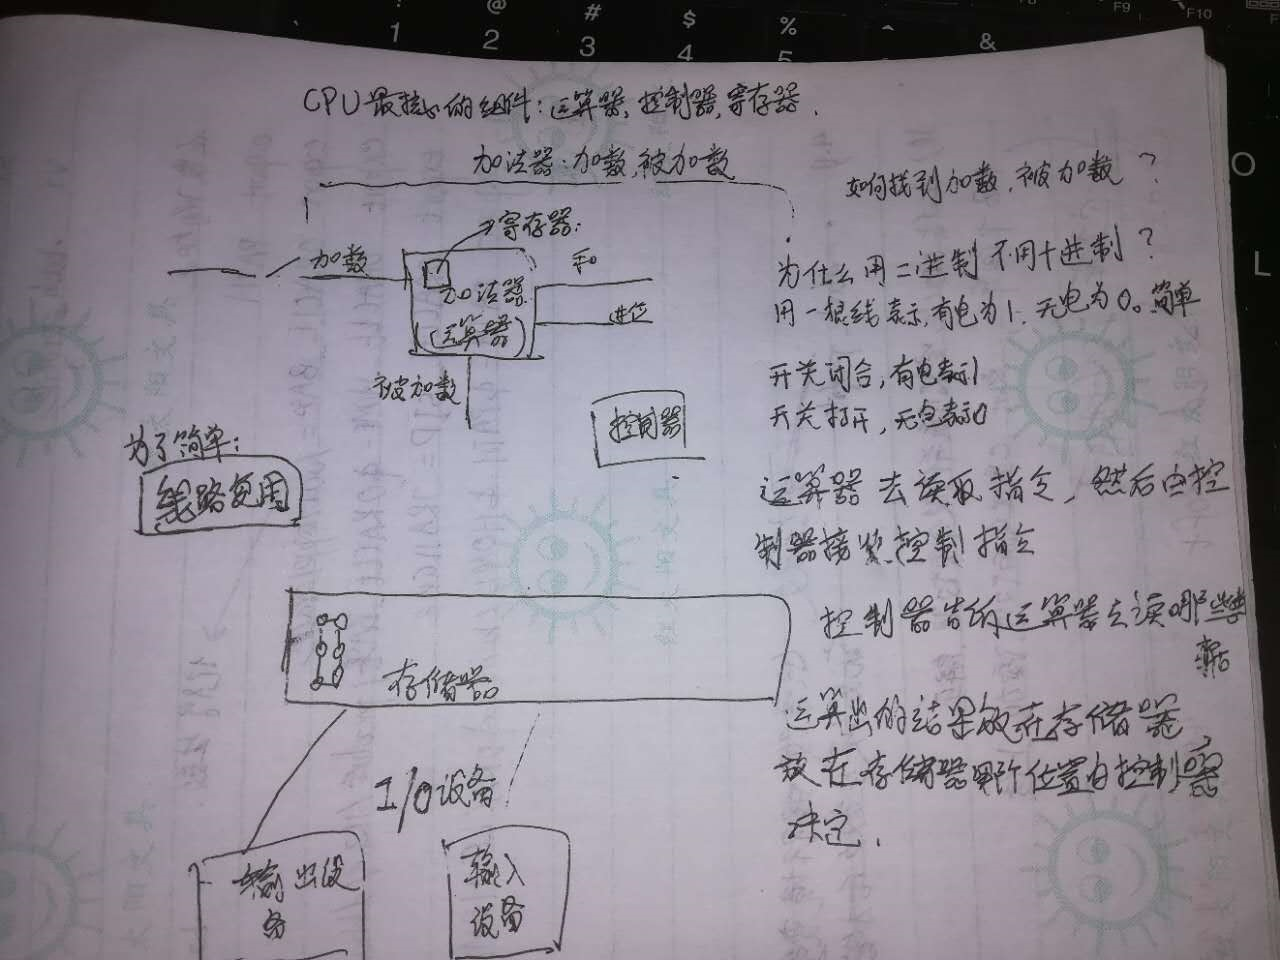 CPU最核心的组件:运算器,控制器,寄存器.
加法器:加数,被加数
如何找到加数,被加数?
寄存器:
加数
和
加法器
(运算器)
进位
被加数
控制器
为什么用二进制不用十进制?
用一根线表示,有电为1,无电为0。简单
开关闭合,有电表示1
开关打开,无电表示0
为了简单:
线路复用
运算器去读取指令,然后由控
制器接受控制指令
控制器告诉运算器去读哪些数据
存储器
运算出的结果放在存储器
放在存储器哪个位置由控制器
决定.
I/O设备
输出设
备
输入
设备
! @ # $ % &
1 2 3 4 5
F9 F10
O
L